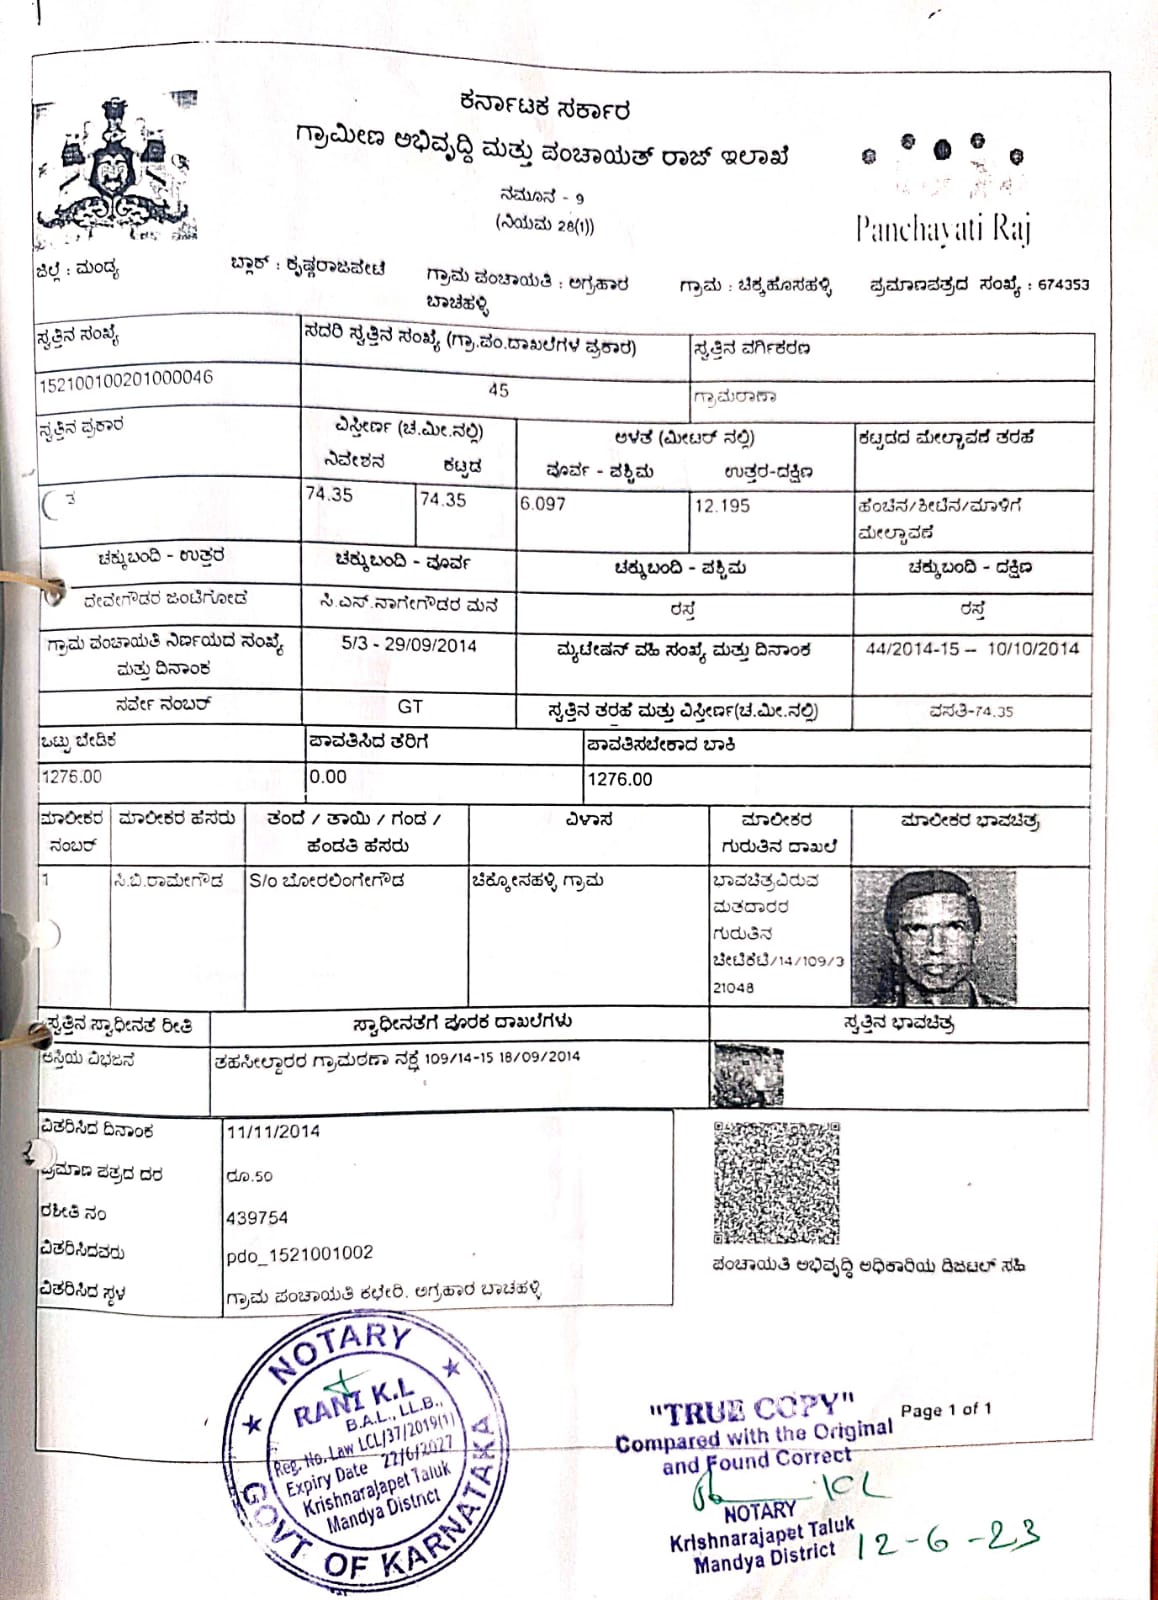 ಕರ್ನಾಟಕ ಸರ್ಕಾರ
ಗ್ರಾಮೀಣ ಅಭಿವೃದ್ದಿ ಮತ್ತು ಪಂಚಾಯತ್ ರಾಜ್ ಇಲಾಖೆ
ನಮೂನೆ - 9
(ನಿಯಮ 28(1))
Panchayati Raj
ಜಿಲ್ಲೆ : ಮಂಡ್ಯ ಬ್ಲಾಕ್ : ಕೃಷ್ಣರಾಜಪೇಟೆ ಗ್ರಾಮ ಪಂಚಾಯತಿ : ಅಗ್ರಹಾರ ಬಾಚಹಳ್ಳಿ ಗ್ರಾಮ : ಚಿಕ್ಕಹೊಸಹಳ್ಳಿ ಪ್ರಮಾಣಪತ್ರದ ಸಂಖ್ಯೆ : 674353
ಸ್ವತ್ತಿನ ಸಂಖ್ಯೆ ಸದರಿ ಸ್ವತ್ತಿನ ಸಂಖ್ಯೆ (ಗ್ರಾ.ಪಂ.ದಾಖಲೆಗಳ ಪ್ರಕಾರ) ಸ್ವತ್ತಿನ ವರ್ಗಿಕರಣ
152100100201000046 45 ಗ್ರಾಮಠಾಣಾ
ಸ್ವತ್ತಿನ ಪ್ರಕಾರ ವಿಸ್ತೀರ್ಣ (ಚ.ಮೀ.ನಲ್ಲಿ) ಅಳತೆ (ಮೀಟರ್ ನಲ್ಲಿ) ಕಟ್ಟಡದ ಮೇಲ್ಚಾವಣಿ ತರಹೆ
ನಿವೇಶನ ಕಟ್ಟಡ ಪೂರ್ವ - ಪಶ್ಚಿಮ ಉತ್ತರ-ದಕ್ಷಿಣ
74.35 74.35 6.097 12.195 ಹೆಂಚಿನ/ಶೀಟಿನ/ಮಾಳಿಗೆ
ಮೇಲ್ಚಾವಣಿ
ಚಕ್ಕುಬಂದಿ - ಉತ್ತರ ಚಕ್ಕುಬಂದಿ - ಪೂರ್ವ ಚಕ್ಕುಬಂದಿ - ಪಶ್ಚಿಮ ಚಕ್ಕುಬಂದಿ - ದಕ್ಷಿಣ
ದೇವೇಗೌಡರ ಜಂಟಿಗೋಡೆ ಸಿ.ಎಸ್.ನಾಗೇಗೌಡರ ಮನೆ ರಸ್ತೆ ರಸ್ತೆ
ಗ್ರಾಮ ಪಂಚಾಯತಿ ನಿರ್ಣಯದ ಸಂಖ್ಯೆ 5/3 - 29/09/2014 ಮ್ಯುಟೇಷನ್ ವಹಿ ಸಂಖ್ಯೆ ಮತ್ತು ದಿನಾಂಕ 44/2014-15 -- 10/10/2014
ಮತ್ತು ದಿನಾಂಕ
ಸರ್ವೇ ನಂಬರ್ GT ಸ್ವತ್ತಿನ ತರಹೆ ಮತ್ತು ವಿಸ್ತೀರ್ಣ(ಚ.ಮೀ.ನಲ್ಲಿ) ವಸತಿ-74.35
ಒಟ್ಟು ಬೇಡಿಕೆ ಪಾವತಿಸಿದ ತೆರಿಗೆ ಪಾವತಿಸಬೇಕಾದ ಬಾಕಿ
1276.00 0.00 1276.00
ಮಾಲೀಕರ ಮಾಲೀಕರ ಹೆಸರು ತಂದೆ / ತಾಯಿ / ಗಂಡ / ವಿಳಾಸ ಮಾಲೀಕರ ಮಾಲೀಕರ ಭಾವಚಿತ್ರ
ನಂಬರ್ ಹೆಂಡತಿ ಹೆಸರು ಗುರುತಿನ ದಾಖಲೆ
1 ಸಿ.ಬಿ.ರಾಮೇಗೌಡ S/o ಬೋರಲಿಂಗೇಗೌಡ ಚಿಕ್ಕೋಸಹಳ್ಳಿ ಗ್ರಾಮ ಭಾವಚಿತ್ರವಿರುವ
ಮತದಾರರ
ಗುರುತಿನ
ಚೀಟಿಕೆಟಿ/14/109/3
21048
ಸ್ವತ್ತಿನ ಸ್ವಾಧೀನತೆ ರೀತಿ ಸ್ವಾಧೀನತೆಗೆ ಪೂರಕ ದಾಖಲೆಗಳು ಸ್ವತ್ತಿನ ಭಾವಚಿತ್ರ
ಆಸ್ತಿಯ ವಿಭಜನೆ ತಹಸೀಲ್ದಾರರ ಗ್ರಾಮಠಾಣಾ ನಕ್ಷೆ 109/14-15 18/09/2014
ವಿತರಿಸಿದ ದಿನಾಂಕ 11/11/2014
ಪ್ರಮಾಣ ಪತ್ರದ ದರ ರೂ.50
ರಶೀತಿ ನಂ 439754
ವಿತರಿಸಿದವರು pdo_1521001002
ವಿತರಿಸಿದ ಸ್ಥಳ ಗ್ರಾಮ ಪಂಚಾಯತಿ ಕಛೇರಿ, ಅಗ್ರಹಾರ ಬಾಚಹಳ್ಳಿ
ಪಂಚಾಯತಿ ಅಭಿವೃದ್ಧಿ ಅಧಿಕಾರಿಯ ಡಿಜಿಟಲ್ ಸಹಿ
NOTARY
RANI K.L
B.A.L., LL.B.,
Reg. No. Law LCL/37/2019(1)
Expiry Date 22/6/2027
Krishnarajapet Taluk
Mandya District
GOVT OF KARNATAKA
"TRUE COPY"
Page 1 of 1
Compared with the Original
and Found Correct
NOTARY
Krishnarajapet Taluk
Mandya District
12-6-23